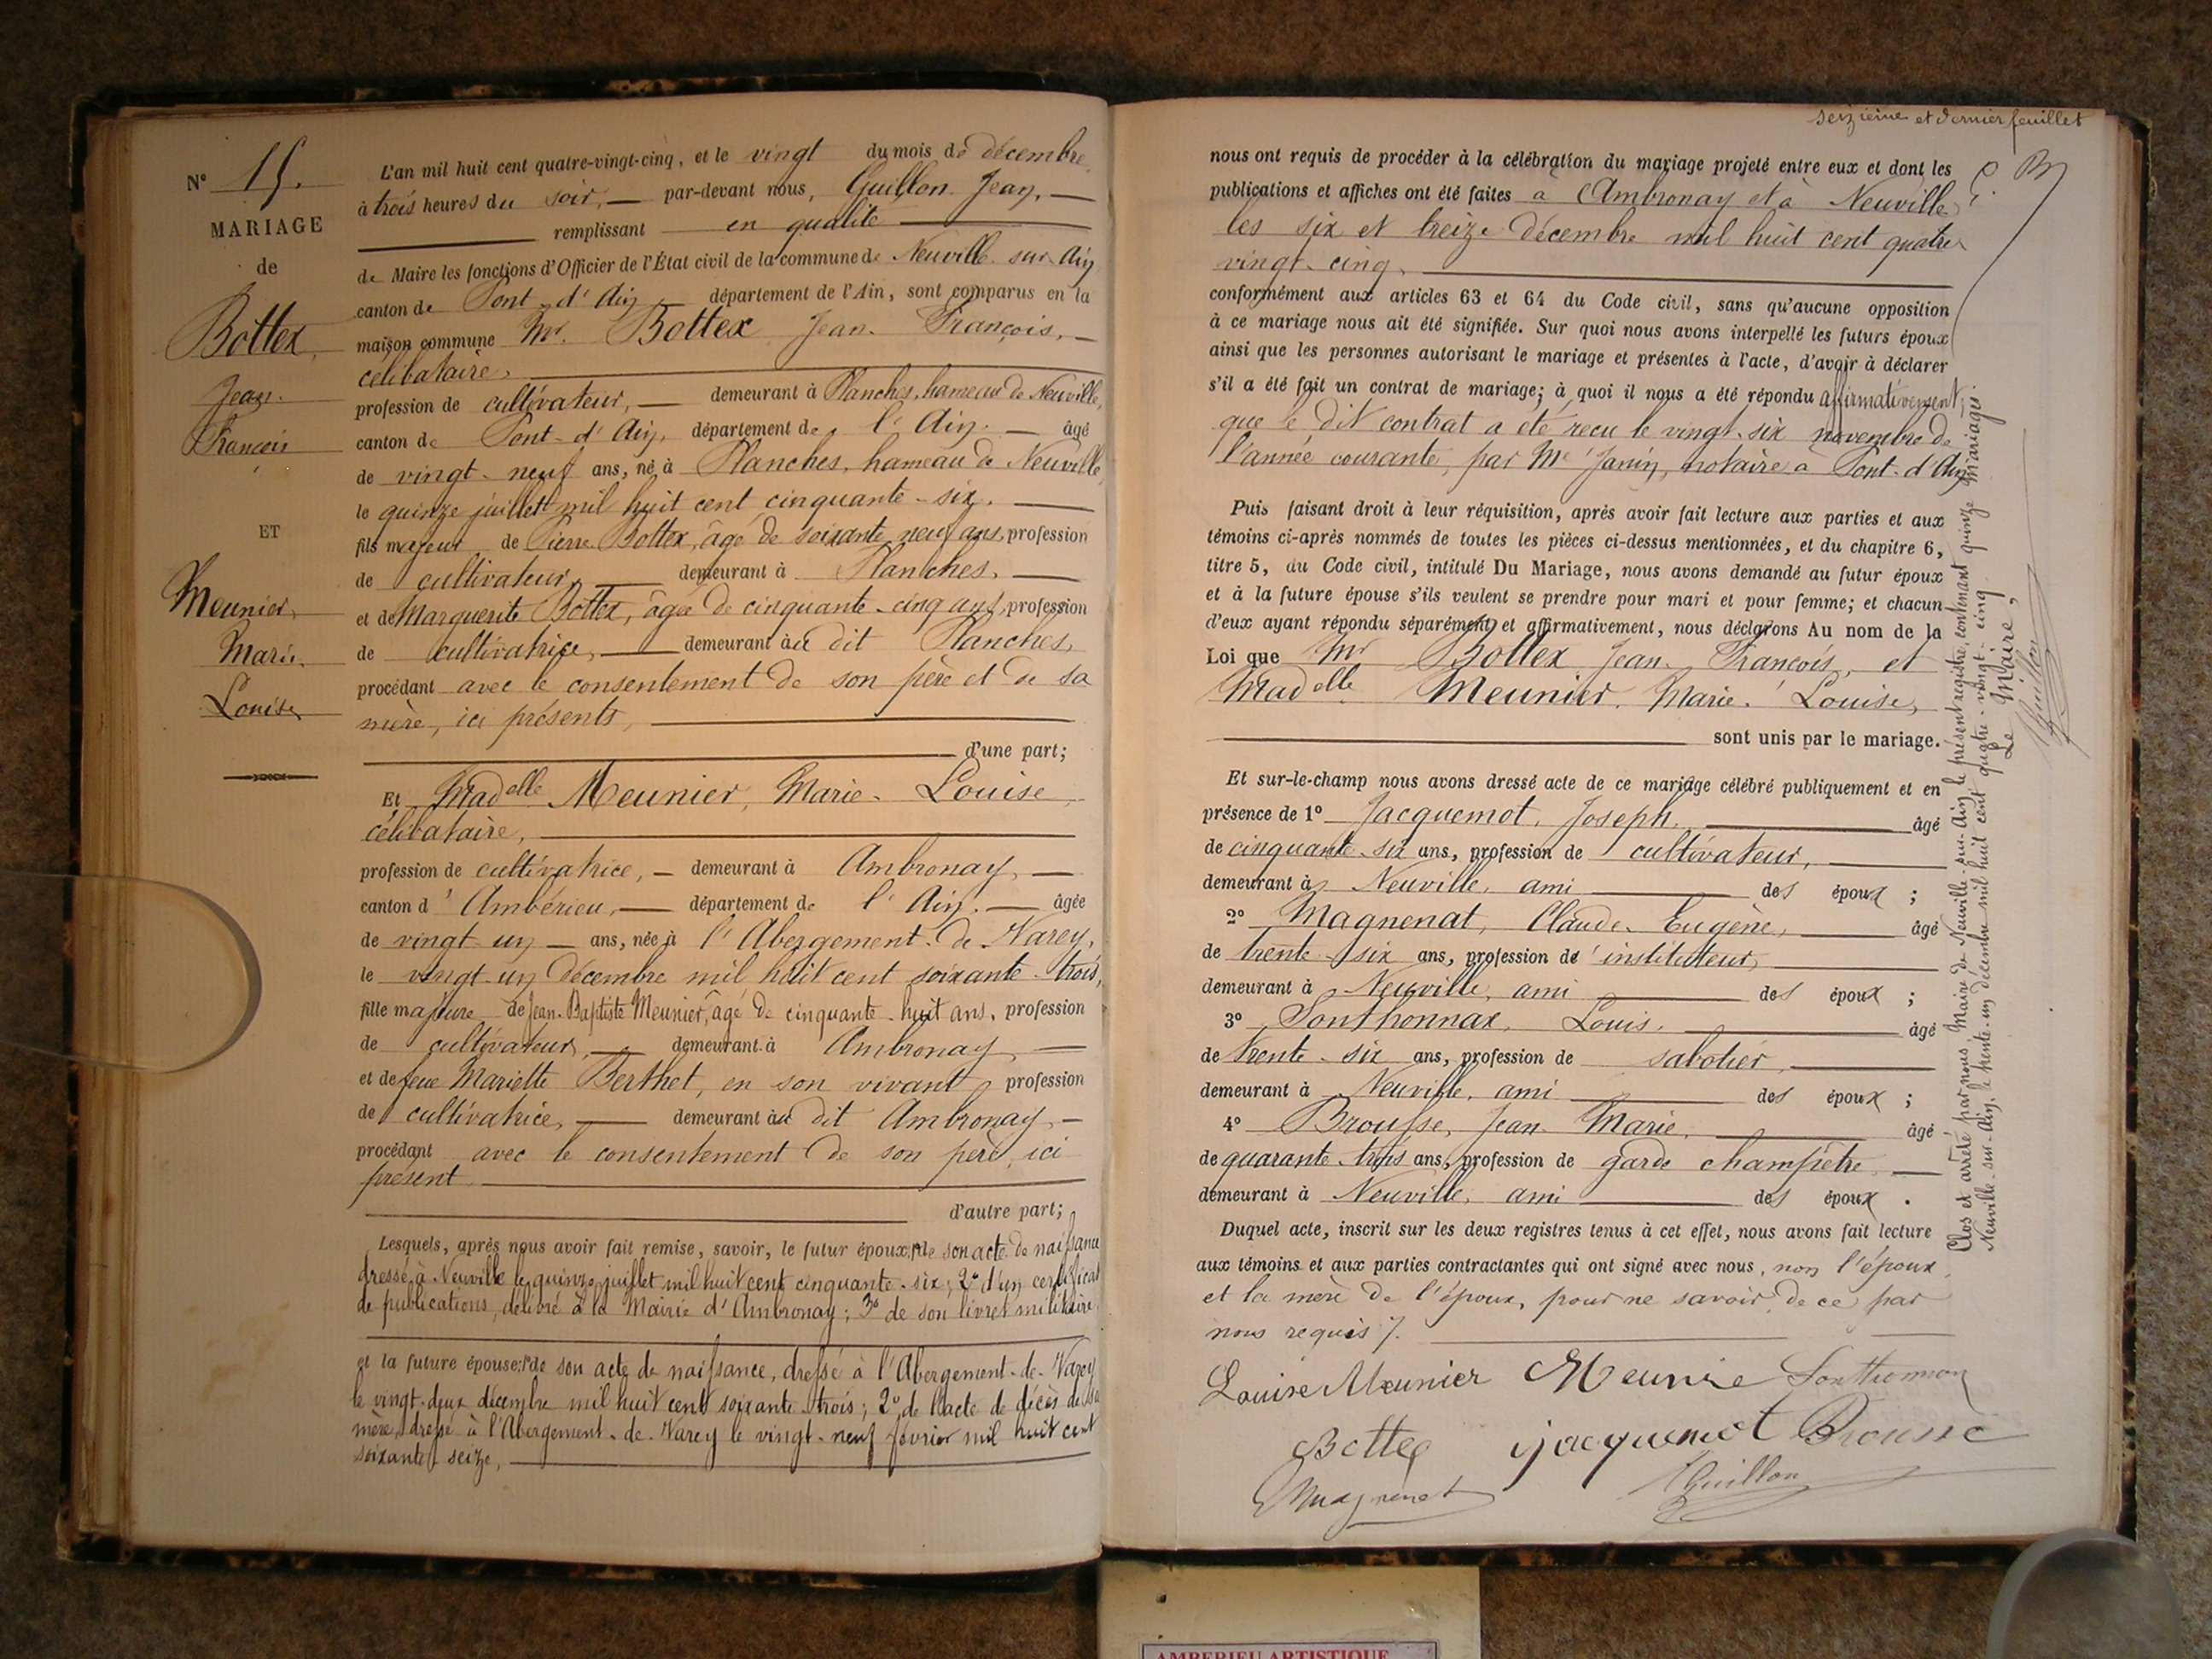 N° 15.
MARIAGE
de
Bottex,
Jean-
François
ET
Meunier,
Marie-
Louise
L'an mil huit cent quatre-vingt-cinq, et le vingt du mois de décembre
à trois heures du soir, par-devant nous, Guillon Jean,
remplissant en qualité
de Maire les fonctions d'Officier de l'État civil de la commune de Neuville-sur-Ain
canton de Pont-d'Ain département de l'Ain, sont comparus en la
maison commune Mr. Bottex Jean-François,
célibataire,
profession de cultivateur, demeurant à Planches, hameau de Neuville,
canton de Pont-d'Ain, département de l'Ain. âgé
de vingt-neuf ans, né à Planches, hameau de Neuville
le quinze juillet mil huit cent cinquante-six.
fils majeur de Pierre Bottex, âgé de soixante neuf ans, profession
de cultivateur, demeurant à Planches,
et de Marguerite Bottex, âgée de cinquante-cinq ans, profession
de cultivatrice, demeurant au dit Planches,
procédant avec le consentement de son père et de sa
mère, ici présents,
d'une part;
Et Madelle Meunier, Marie-Louise
célibataire,
profession de cultivatrice, demeurant à Ambronay,
canton d'Ambérieu, département de l'Ain. âgée
de vingt-un ans, née à l'Abergement-de-Varey,
le vingt-un décembre mil huit cent soixante-trois,
fille majeure de Jean-Baptiste Meunier, âgé de cinquante-huit ans, profession
de cultivateur, demeurant à Ambronay,
et de feue Mariette Berthet, en son vivant, profession
de cultivatrice, demeurant au dit Ambronay,
procédant avec le consentement de son père, ici
présent
d'autre part;
Lesquels, après nous avoir fait remise, savoir, le futur époux: 1° de son acte de naissance
dressé à Neuville le quinze juillet mil huit cent cinquante-six; 2° d'un certificat
de publications, délivré à la Mairie d'Ambronay; 3° de son livret militaire
et la future épouse: 1° de son acte de naissance, dressé à l'Abergement-de-Varey
le vingt-deux décembre mil huit cent soixante-trois; 2° de l'acte de décès de sa
mère, dressé à l'Abergement-de-Varey le vingt-neuf février mil huit cent
soixante-seize,
seizième et dernier feuillet
nous ont requis de procéder à la célébration du mariage projeté entre eux et dont les
publications et affiches ont été faites à Ambronay et à Neuville
les six et treize décembre mil huit cent quatre
vingt-cinq,
conformément aux articles 63 et 64 du Code civil, sans qu'aucune opposition
à ce mariage nous ait été signifiée. Sur quoi nous avons interpellé les futurs époux
ainsi que les personnes autorisant le mariage et présentes à l'acte, d'avoir à déclarer
s'il a été fait un contrat de mariage; à quoi il nous a été répondu affirmativement,
que le dit contrat a été reçu le vingt-six novembre de
l'année courante, par Me Janin, notaire à Pont-d'Ain
Puis faisant droit à leur réquisition, après avoir fait lecture aux parties et aux
témoins ci-après nommés de toutes les pièces ci-dessus mentionnées, et du chapitre 6,
titre 5, du Code civil, intitulé Du Mariage, nous avons demandé au futur époux
et à la future épouse s'ils veulent se prendre pour mari et pour femme; et chacun
d'eux ayant répondu séparément et affirmativement, nous déclarons Au nom de la
Loi que Mr Bottex Jean-François, et
Madelle Meunier, Marie-Louise,
sont unis par le mariage.
Et sur-le-champ nous avons dressé acte de ce mariage célébré publiquement et en
présence de 1° Jacquemot, Joseph, âgé
de cinquante-six ans, profession de cultivateur,
demeurant à Neuville, ami des époux ;
2° Magnenat, Claude-Eugène, âgé
de trente-six ans, profession d'instituteur,
demeurant à Neuville, ami des époux ;
3° Sonthonnax, Louis, âgé
de trente-six ans, profession de sabotier,
demeurant à Neuville, ami des époux ;
4° Brousse, Jean-Marie, âgé
de quarante-trois ans, profession de garde champêtre
demeurant à Neuville, ami des époux .
Duquel acte, inscrit sur les deux registres tenus à cet effet, nous avons fait lecture
aux témoins et aux parties contractantes qui ont signé avec nous, non l'époux
et la mère de l'époux, pour ne savoir de ce par
nous requis ./.
Louise Meunier Meunie Sonthonnax
Botte jacquemot Brousse
Magnenat Guillon
Clos et arrêté par nous, Maire de Neuville-sur-Ain, le présent registre, contenant quinze mariages
Neuville-sur-Ain, le trente-un décembre mil huit cent quatre-vingt-cinq
Le Maire,
Guillon
AMBERIEU ARTISTIQUE